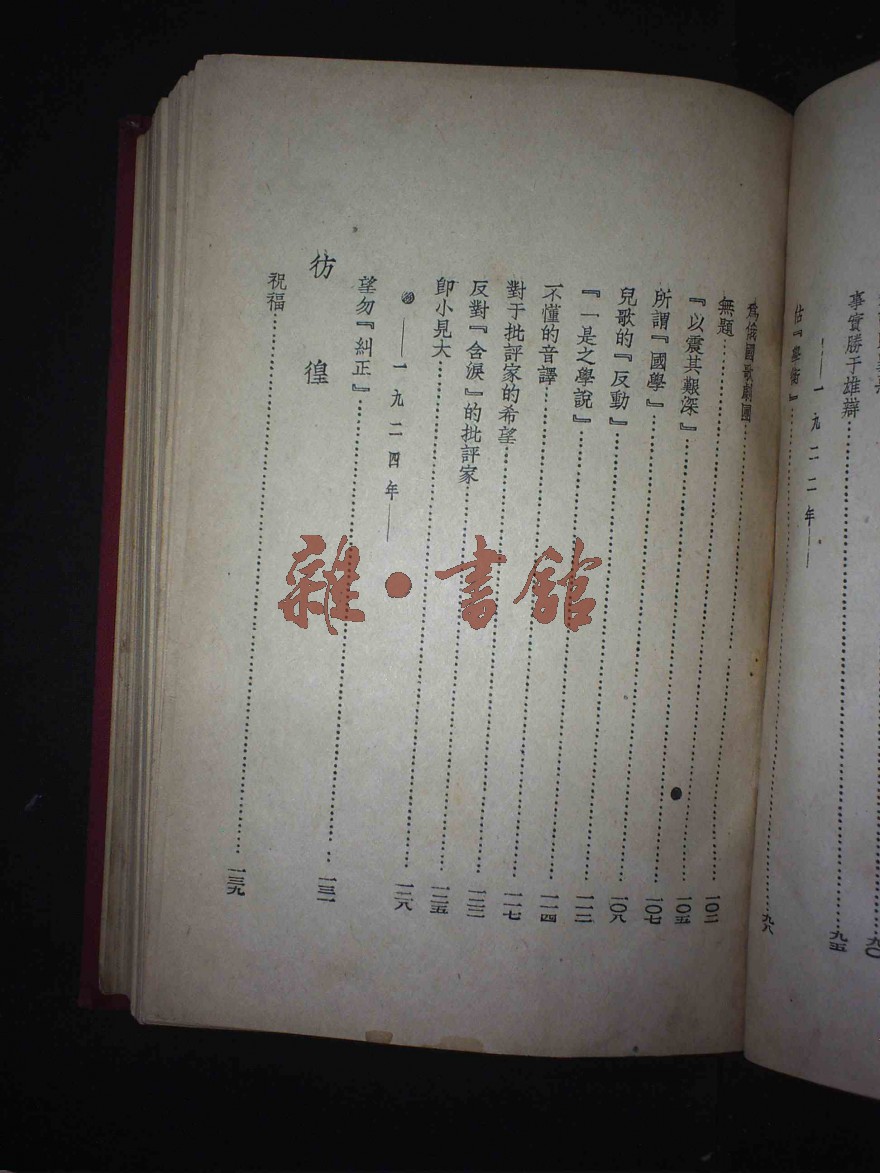 九〇
事實勝于雄辯……九五
——一九二二年——
估『學衡』……九八
爲俄國歌劇團……一〇二
無題……一〇五
『以震其艱深』……一〇七
所謂『國學』……一〇八
兒歌的『反動』……一一二
『一是之學說』……一一四
不懂的音譯……一一七
對于批評家的希望……一二二
反對『含淚』的批評家……一二五
卽小見大……一二八
——一九二四年—
望勿『糾正』……一三一
彷徨
祝福……一三九
雜·書館